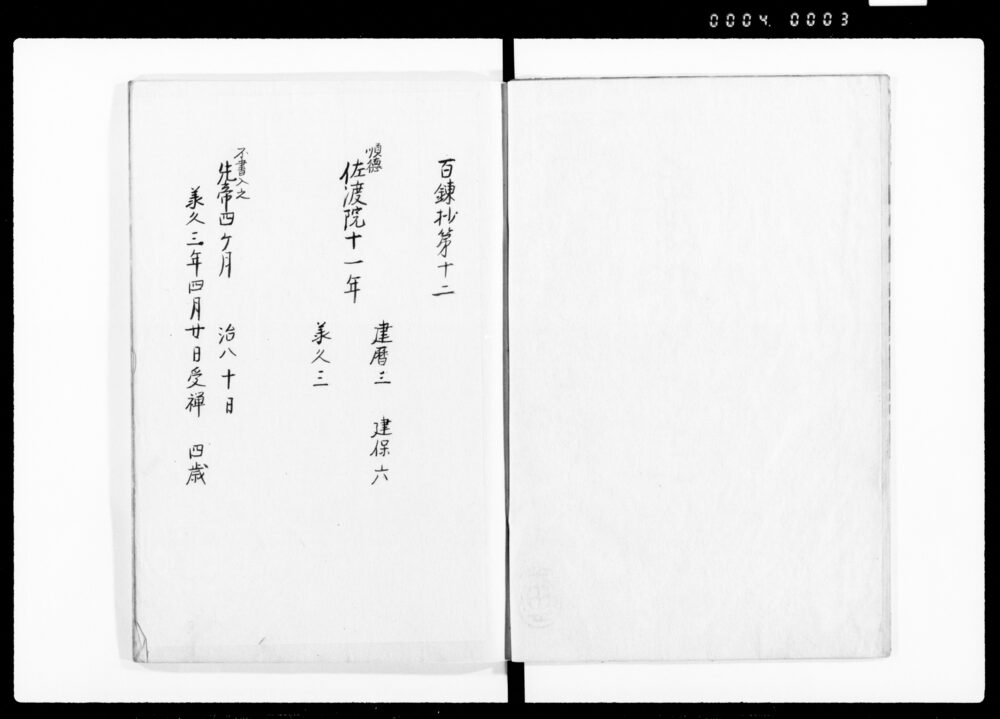 0004 0003
百錬抄第十二
順徳
佐渡院十一年
建暦三 建保六
承久三
不書入之
先帝四ケ月 治八十日
承久三年四月廿日受禅 四歳